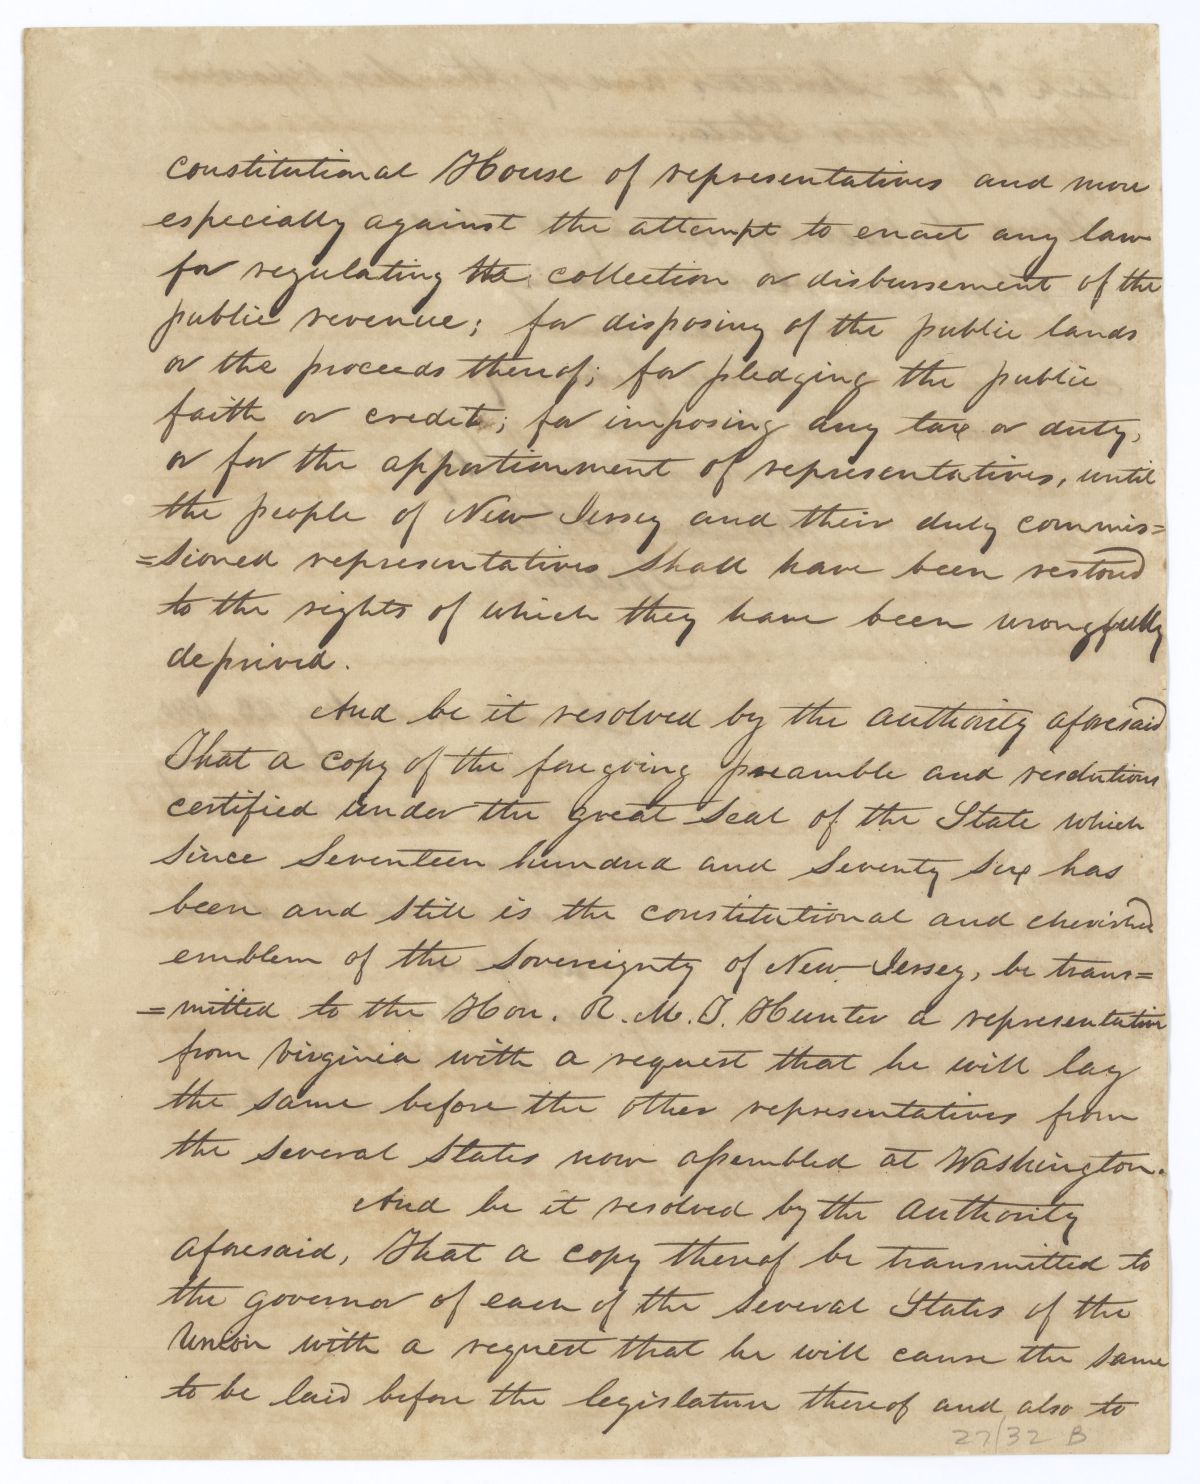 constitutional House of representatives and more
especially against the attempt to enact any law
for regulating the collection or disbursement of the
public revenue; for disposing of the public lands
or the proceeds thereof; for pledging the public
faith or credit; for imposing any tax or duty,
or for the apportionment of representatives, until
the people of New Jersey and their duly commis=
=sioned representatives shall have been restored
to the rights of which they have been wrongfully
deprived.
And be it resolved by the authority aforesaid
That a copy of the foregoing preamble and resolutions
certified under the great seal of the State which
since seventeen hundred and seventy six has
been and still is the constitutional and cherished
emblem of the sovereignty of New Jersey, be trans=
=mitted to the Hon. R. M. T. Hunter a representative
from Virginia with a request that he will lay
the same before the other representatives from
the several States now assembled at Washington.
And be it resolved by the authority
aforesaid, That a copy thereof be transmitted to
the governor of each of the several States of the
Union with a request that he will cause the same
to be laid before the legislature thereof and also to
27/32 B